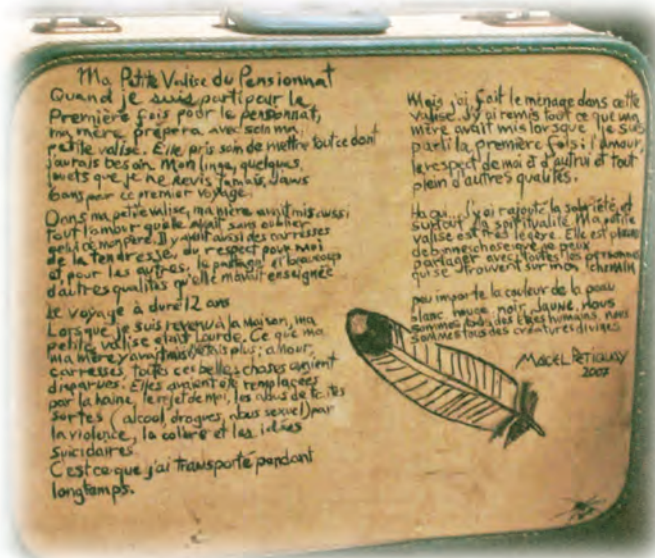 Ma Petite Valise du Pensionnat
Quand je suis parti pour la
Première fois pour le pensonnat,
ma mère prépara avec soin ma
petite valise. Elle pris soin de mettre tout ce dont
j'aurais besoin Mon linge, quelques
jouets que je ne Revis Jamais, Jours
bans pour ce premier voyage.
Dans ma petite valise, ma mère avait mis aussi
tout l'amour qu'elle avait sans oublier
celui de mon père. Il y avait aussi des carresses
de la tendresse, du respect pour moi
et pour les autres. le partage et beaucoup
d'autres qualités qu'elle m'avait enseignée
Le voyage à duré 12 ans
Lorsque je suis revenu à la Maison, ma
petite valise était Lourde. Ce que ma
ma mère y avait mis n'était plus; amour,
carresses, toutes ces belles choses avaient
disparues. Elles avaient été remplacées
par la haine, le rejet de moi, les abus de toutes
sortes (alcool, drogues, abus sexuel) par
la violence, la colère et les idées
suicidaires
C'est ce que j'ai transporté pendant
longtemps.
Mais j'ai fait le ménage dans cette
valise. J'y ai remis tout ce que ma
mère avait mis lorsque je suis
parti la première fois: l'amour,
le respect de moi et d'autrui et tout
plein d'autres qualités.
J'y ai rajouté la sobriété et
surtout la spiritualité. Ma petite
valise est très légère. Elle est pleine
de bonne chose que je peux
partager avec toutes les personnes
qui se trouvent sur mon chemin
peu importe la couleur de la peau
blanc rouge noir Jaune. Nous
sommes tous des êtres humains, nous
sommes tous des créatures divines
MARCEL PETIQUAY
2007